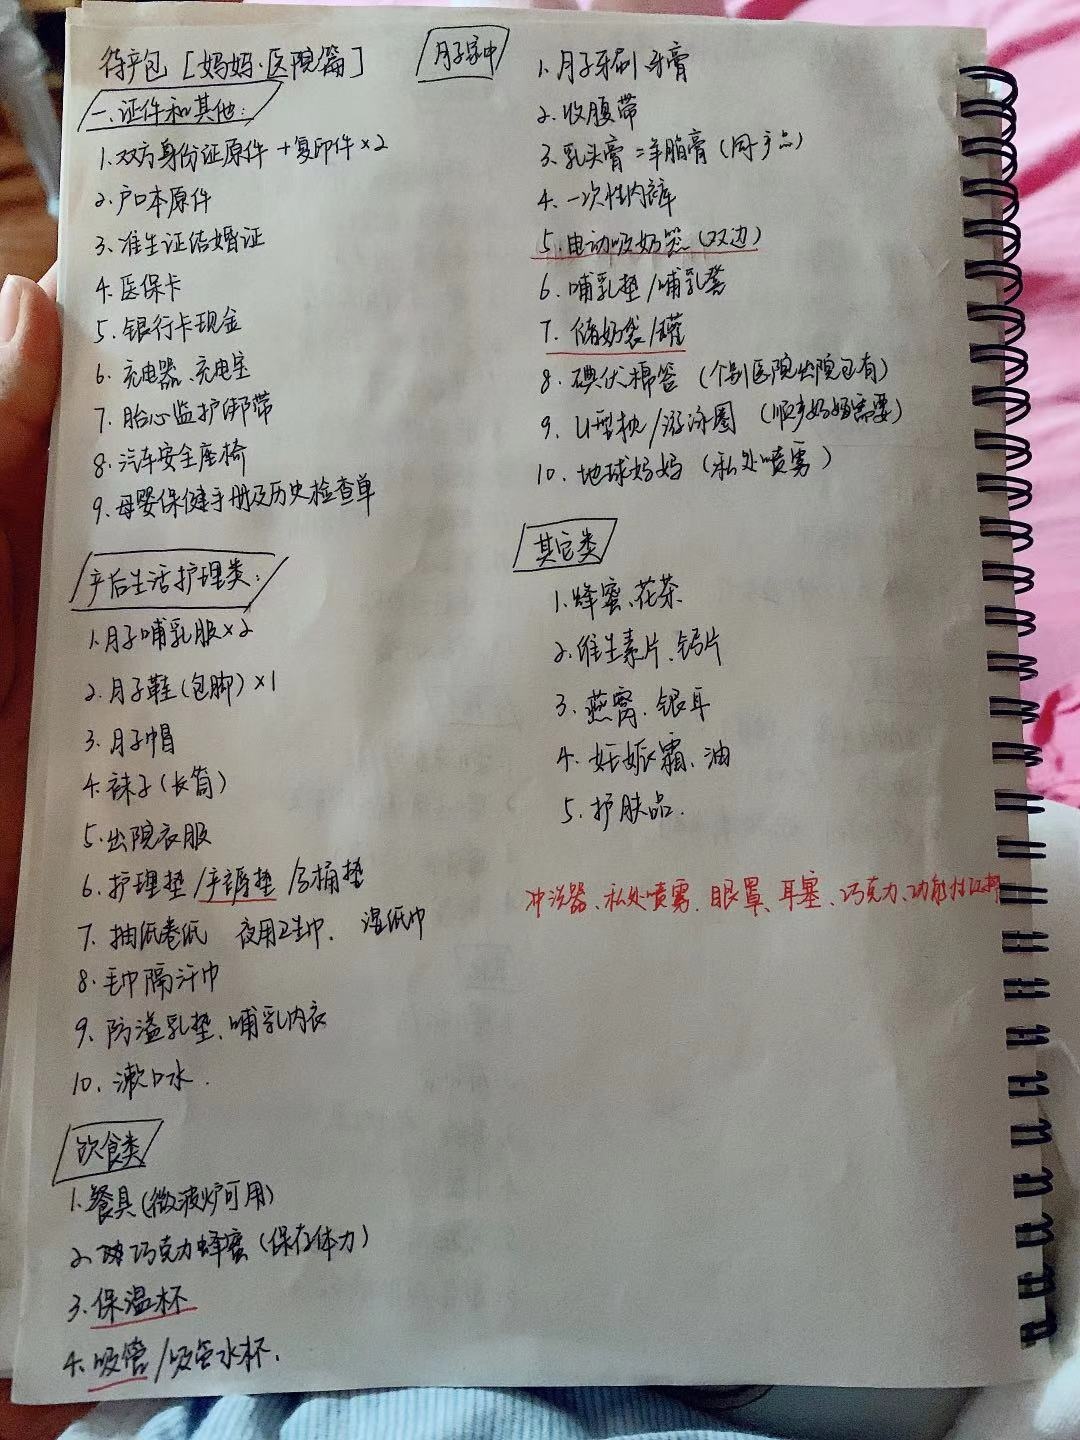 待产包 [妈妈·医院篇]
一、证件和其他:
1. 双方身份证原件+复印件×2
2. 户口本原件
3. 准生证结婚证
4. 医保卡
5. 银行卡现金
6. 充电器、充电宝
7. 胎心监护绑带
8. 汽车安全座椅
9. 母婴保健手册及历史检查单
产后生活护理类:
1. 月子哺乳服×2
2. 月子鞋(包脚)×1
3. 月子帽
4. 袜子(长筒)
5. 出院衣服
6. 护理垫/产褥垫/马桶垫
7. 抽纸卷纸 夜用卫生巾、 湿纸巾
8. 毛巾隔汗巾
9. 防溢乳垫、哺乳内衣
10. 漱口水.
饮食类
1. 餐具(微波炉可用)
2. 巧克力蜂蜜(保存体力)
3. 保温杯
4. 吸管/吸管水杯.
月子家中
1. 月子牙刷 牙膏
2. 收腹带
3. 乳头膏=羊脂膏(同产品)
4. 一次性内裤
5. 电动吸奶器(双边)
6. 哺乳垫/哺乳凳
7. 储奶袋/罐
8. 碘伏棉签 (个别医院出院包有)
9. U型枕/游泳圈 (顺产妈妈需要)
10. 地球妈妈 (私处喷雾)
其它类
1. 蜂蜜、花茶
2. 维生素片、钙片
3. 燕窝、银耳
4. 妊娠霜、油
5. 护肤品.
冲洗器、私处喷雾、眼罩、耳塞、巧克力、功能性饮料